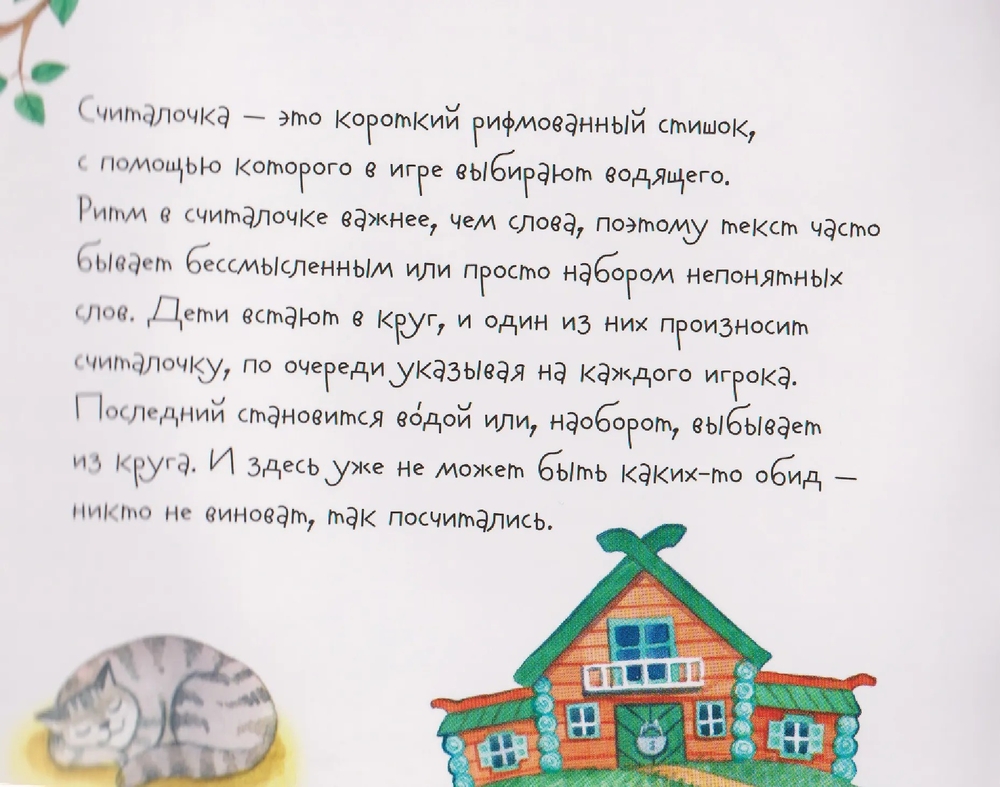 Считалочка — это короткий рифмованный стишок,
с помощью которого в игре выбирают водящего.
Ритм в считалочке важнее, чем слова, поэтому текст часто
бывает бессмысленным или просто набором непонятных
слов. Дети встают в круг, и один из них произносит
считалочку, по очереди указывая на каждого игрока.
Последний становится во́дой или, наоборот, выбывает
из круга. И здесь уже не может быть каких-то обид —
никто не виноват, так посчитались.